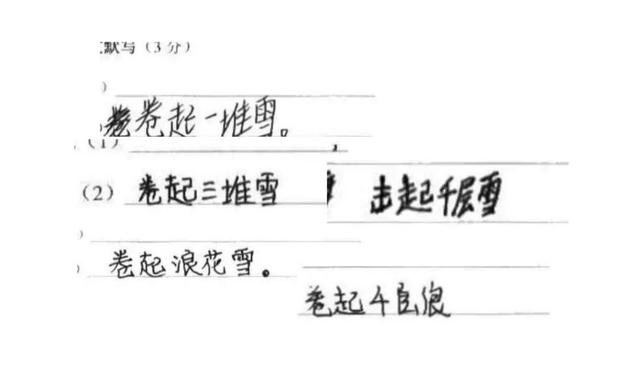 默写（3分）
）
卷起一堆雪。
（1）
，
（2） 卷起三堆雪
击起千层雪
）
） 卷起浪花雪。
卷起千层浪